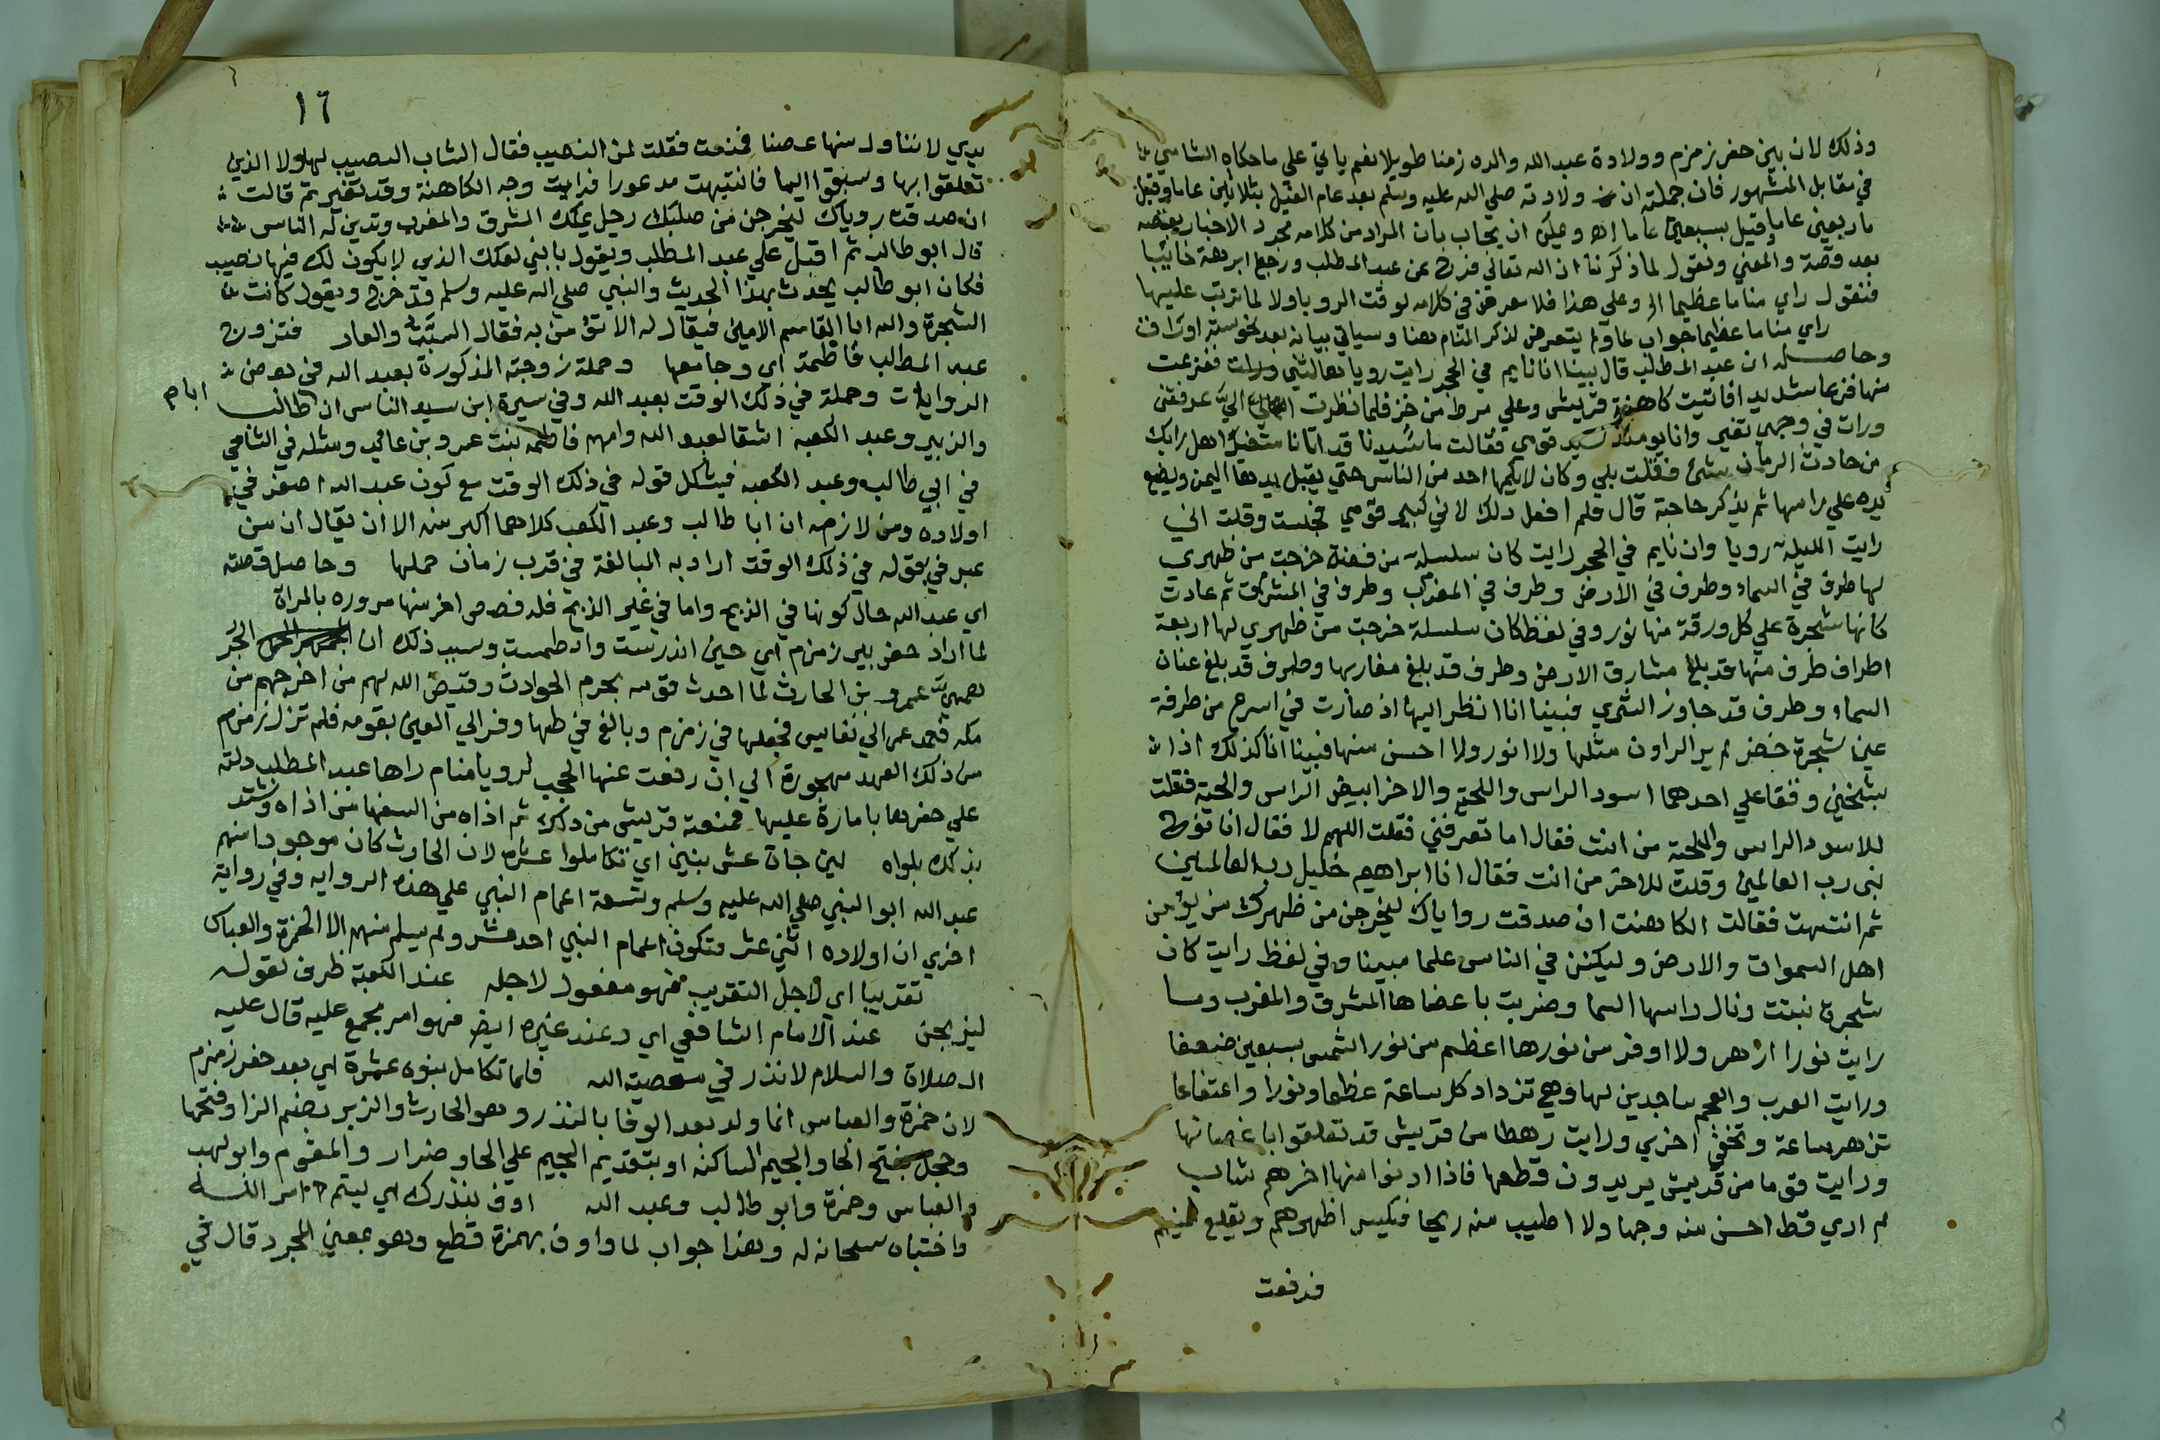 وذلك لان بين حفر زمزم وولادة عبد الله والده زمنا طويلا نعم ياتي علي ما حكاه الشامي
في مقابل المشهور فان جملته ان ولادته صلي الله عليه وسلم بعد عام الفيل بثلاثين عاما وقيل
باربعين عاما وقيل بسبعين عاما اه ويمكن ان يجاب بان المراد من كلامه مجرد الاخبار
بعد وقصة والمعني ونقول لما ذكرنا ان الله تعالي فرج عن عبد المطلب ورجع ابرهة خائبا
فنقول راي مناما عظيما الخ وعلي هذا فلا معرض في كلامه لوقت الرويا ولا لما ترتب عليها
راي مناما عظيما جواب لما ولم يتعرض لذكر المنام هنا وسياتي بيانه بعد نحو ستة اوراق
وحاصله ان عبد المطلب قال بينا انا نايم في الحجر رايت رويا هالتني ففزعت
منها فزعا شديدا فاتيت كاهنة قريش وعلي مرط من خز فلما نظرت الي عرفت
ورات في وجهي تغير وانا يومئذ سيد قومي فقالت ما سيدنا قد اتانا متغير اهل رابك
من حادث الزمان شئ فقلت بلي وكان لا يكلمها احد من الناس حتي يقبل يدها اليمن ويضع
يده علي راسها ثم يذكر حاجة قال فلم افعل ذلك لاني كبير قومي فجلست وقلت اني
رايت الليلة رويا وان نايم في الحجر رايت كان سلسلة من فضة خرجت من ظهري
لها طرف في السماء وطرف في الارض وطرف في المغرب وطرف في المشرق ثم عادت
كانها شجرة علي كل ورقة منها نور وفي لفظ كان سلسلة خرجت من ظهري لها اربعة
اطراف طرف منها قد بلغ مشارق الارض وطرف قد بلغ مغاربها وطرف قد بلغ عنان
السماء وطرف قد جاوز الثري فبينا انا انظر اليها اذ صارت في اسرع من طرفة
عين شجرة خضر لم ير الراون مثلها ولا انور ولا احسن منها فبينا انا كذلك اذا
بشخصين وقفا علي احدهما اسود الراس واللحية والاخر ابيض الراس والحية فقلت
للاسود الراس واللحية من انت فقال اما تعرفني فقلت اللهم لا فقال انا نوح
نبي رب العالمين وقلت للاخر من انت فقال انا ابراهيم خليل رب العالمين
ثم انتبهت فقالت الكاهنت ان صدقت روياك ليخرجن من ظهرك من يؤمن
اهل السموات والارض وليكنن في الناس علما مبينا وفي لفظ رايت كان
شجرة نبتت ونال راسها السما وضربت باعضاها المشرق والمغرب وما
رايت نورا ازهر ولا اوفر من نورها اعظم من نور الشمس بسبعين ضعفا
ورايت العرب والعجم ساجدين لها وهي تزداد كل ساعة عظما ونورا وارتفاعا
تزهر ساعة وتخفي اخري ورايت رهطا من قريش قد تعلقوا باغصانها
ورايت قوما من قريش يريدون قطعها فاذا ادنوا منها اخرهم شاب
لم اري قط احسن منه وجها ولا اطيب منه ريحا فيكسر اظهرهم ويقلع اعينهم
فرفعت
١٦
يدي لاتناول منها غصنا فمنعت فقلت لمن النصيب فقال الشاب النصيب لهاولا الذين
تعلقوا بها وسبقوا اليها فانتبهت مدعورا فرايت وجه الكاهنة وقد تغير ثم قالت
ان صدقت روياك ليخرجن من صلبك رجل يملك المشرق والمغرب وتدين له الناس
قال ابو طالب ثم اقبل علي عبد المطلب ويقول يا بني لعلك الذي لا يكون لك فيها نصيب
فكان ابو طالب يحدث بهذا الحديث والنبي صلي الله عليه وسلم قد خرج ويقول كانت
الشجرة والله ابا القاسم الامين فيقال له الا تؤمن به فقال السبة والعار فتزوج
عبد المطلب فاطمة اي وجامعها وحملت زوجته المذكورة بعبد الله في بعض
الروايات وحملت في ذلك الوقت بعبد الله وفي سيرة ابن سيد الناس ان ابا طالب
والزبير وعبد الكعبه اشقا لعبد الله وامهم فاطمه بنت عمرو بن عامر ومثله في الشامي
في ابي طالب وعبد الكعبه فيشكل قوله في ذلك الوقت مع كون عبد الله اصغر في
اولاده ومن لازمه ان ابا طالب وعبد الكعبه كلاهما اكبر منه الا ان يقال ان من
عبر في بقوله في ذلك الوقت اراد به المبالغة في قرب زمان حملها وحاصل قصته
اي عبد الله حال كونها في الذبح واما في غير الذبح فله قصص اخر منها مروره بالمراة
لما اراد حفر بير زمزم اي حين اندرست وانطمست وسبب ذلك ان الجر
همي عمرو بن الحارث لما احدث قومه بحرم الحوادث وقيض الله لهم من اخرجهم من
مكه فعمد عمر الي نفايس فجعلها في زمزم وبالغ في طمها وفر الي اليمن بقومه فلم تزل زمزم
من ذلك العهد مهجورة الي ان رفعت عنها الحجب لرويا منام راها عبد المطلب دلته
علي حفرها بامارة عليها فمنعته قريش من ذلك ثم اذاه من السفها من اذاه واشتد
بذلك بلواه لين جاه عشر بنين اي تكاملوا عشره لان الحارث كان موجودا منهم
عبد الله ابو النبي صلي الله عليه وسلم وتسعة اعمام النبي علي هذه الروايه وفي رواية
اخري ان اولاده اثني عشر فتكون اعمام النبي احد عشر ولم يسلم منهم الا الحمزة والعباس
تقديبا اي لاجل التقريب فهو مفعول لاجله عند الكعبة ظرف لقوله
ليذبحن عند الامام الشافعي اي وعند غيره ايض فهو امر مجمع عليه قال عليه
الصلاة والسلام لا نذر في معصية الله فلما تكامل بنوه عشرة اي بعد حفر زمزم
لان حمزة والعباس انما ولد بعد الوفا بالنذر وهو الحارث والزبير بضم الزا وفتحها
وحجل بفتح الحا والجيم الساكنه او بتقديم الجيم علي الحا وضرار والمقوم وابو لهب
والعباس وحمزة وابو طالب وعبد الله اوف بنذرك اي ليتم امر الله
واختباه سبحانه له وهذا جواب لما واوف بهمزة قطع وهو بمعني المجرد قال في